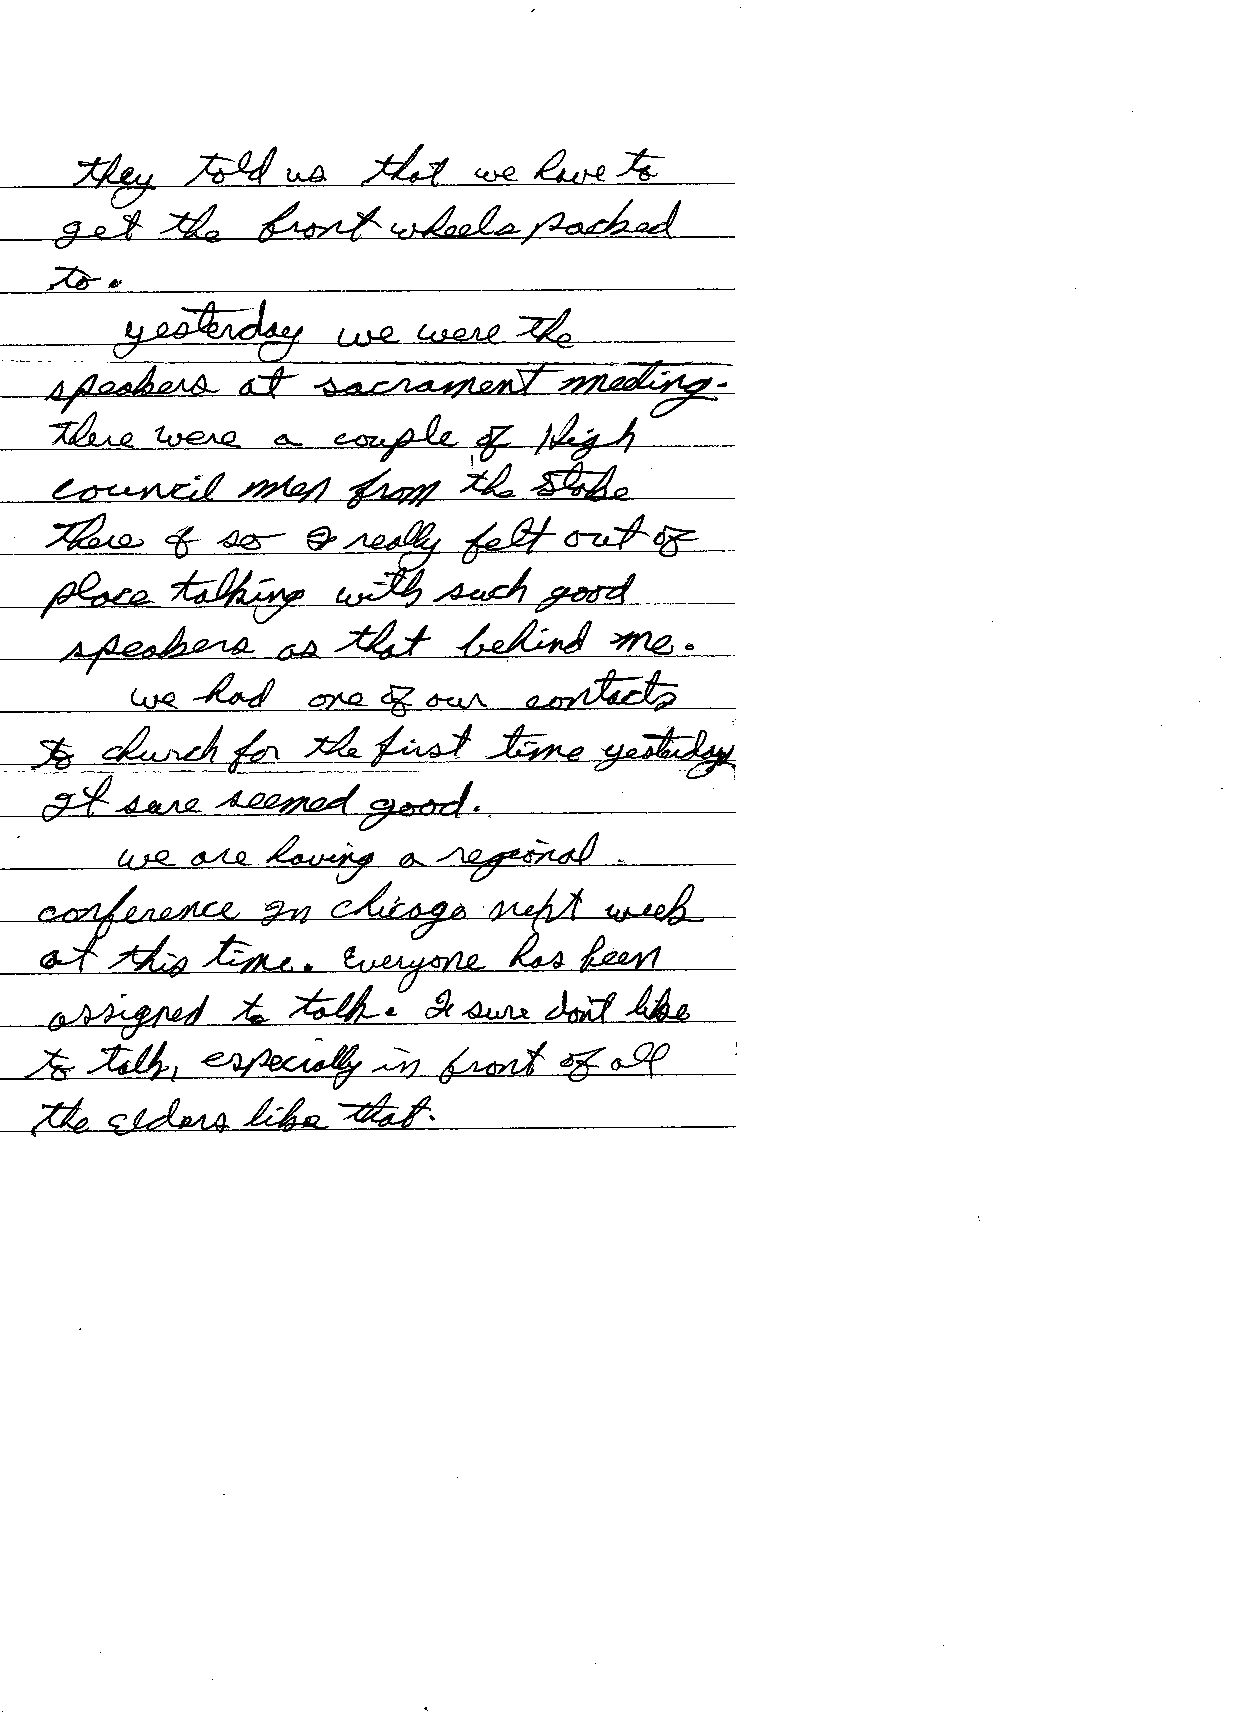 they told us that we have to
get the front wheels packed
to.
yesterday we were the
speakers at sacrament meeting.
there were a couple of High
council men from the Stake
there & so I really felt out of
place talking with such good
speakers as that behind me.
we had one of our contacts
to church for the first time yesterday
It sure seemed good.
we are having a regional
conference In chicago next week
at this time. Everyone has been
assigned to talk. I sure don't like
to talk, especially in front of all
the Elders like that.